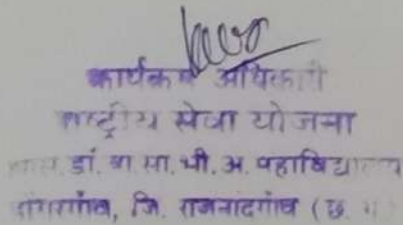 कार्यक्रम अधिकारी
राष्ट्रीय सेवा योजना
डॉ. बा. सा. भी. अ. महाविद्यालय
डोंगरगांव, जि. राजनांदगांव (छ. ग.